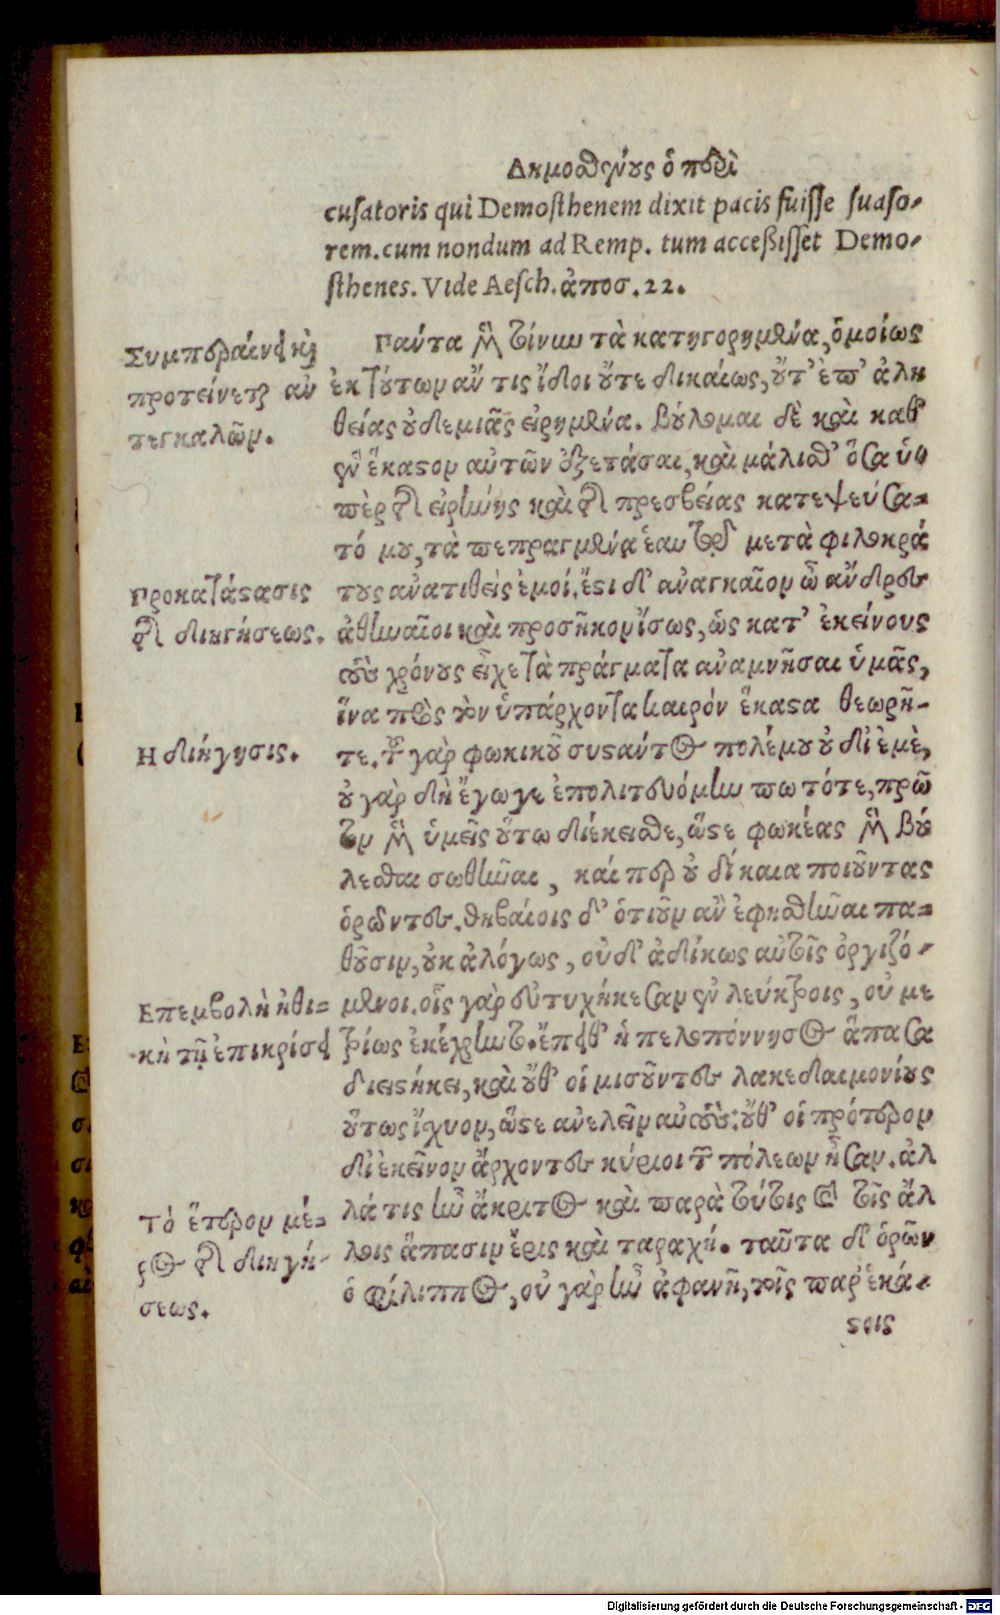 Δημοσθένους ὁ περὶ
cusatoris qui Demosthenem dixit pacis fuisse suaso-
rem. cum nondum ad Remp. tum accessisset Demo-
sthenes. Vide Aesch. ἀποσ. 22.
Συμπεραίνει καὶ
προτείνεται ἀν
τεγκαλῶν.
Πάντα μὲν τοίνυν τὰ κατηγορημένα, ὁμοίως
ἐκ τούτων ἄν τις ἴδοι οὔτε δικαίως, οὔτ' ἐπ' ἀλη
θείας οὐδεμιᾶς εἰρημένα. βούλομαι δὲ καὶ καθ'
ἓν ἕκαστον αὐτῶν ἐξετάσαι, καὶ μάλισθ' ὅσα ὑ-
πὲρ τῆς εἰρήνης καὶ τῆς πρεσβείας κατεψεύσα-
τό μου, τὰ πεπραγμένα ἑαυτῷ μετὰ φιλοκρά
τους ἀνατιθεὶς ἐμοί. ἔστι δ' ἀναγκαῖον ὦ ἄνδρες
Προκατάστασις
τῆς διηγήσεως.
ἀθηναῖοι καὶ προσῆκον ἴσως, ὡς κατ' ἐκείνους
τοὺς χρόνους εἶχε τὰ πράγματα ἀναμνῆσαι ὑμᾶς,
ἵνα πρὸς τὸν ὑπάρχοντα καιρὸν ἕκαστα θεωρῆ-
Η διήγησις.
τε. τοῦ γὰρ φωκικοῦ συστάντος πολέμου οὐ δι' ἐμὲ,
οὐ γὰρ δὴ ἔγωγε ἐπολιτευόμην πω τότε, πρῶ
τον μὲν ὑμεῖς οὕτω διέκεισθε, ὥστε φωκέας μὲν βού
λεσθαι σωθῆναι, καίπερ οὐ δίκαια ποιοῦντας
ὁρῶντες. θηβαίοις δ' ὁτιοῦν ἂν ἐφησθῆναι πα-
θοῦσιν, οὐκ ἀλόγως, οὐδ' ἀδίκως αὐτοῖς ὀργιζό-
Επεμβολὴ ἠθι-
κὴ τῇ ἐπικρίσει
μενοι. οἷς γὰρ εὐτυχήκεσαν ἐν λεύκτροις, οὐ με
τρίως ἐκέχρηντο. ἔπειθ' ἡ πελοπόννησος ἅπασα
διειστήκει, καὶ οὔθ' οἱ μισοῦντες λακεδαιμονίους
οὕτως ἴσχυον, ὥστε ἀνελεῖν αὐτούς· οὔθ' οἱ πρότερον
δι' ἐκείνον ἄρχοντες κύριοι τῶν πόλεων ἦσαν. ἀλ
Τὸ ἕτερον μέ-
ρος τῆς διηγή-
σεως.
λά τις ἦν ἄκριτος καὶ παρὰ τούτοις καὶ τοῖς ἄλ
λοις ἅπασιν ἔρις καὶ ταραχή. ταῦτα δ' ὁρῶν
ὁ φίλιππος, οὐ γὰρ ἦν ἀφανῆ, τοῖς παρ' ἑκά-
στοις
Digitalisierung gefördert durch die Deutsche Forschungsgemeinschaft - DFG